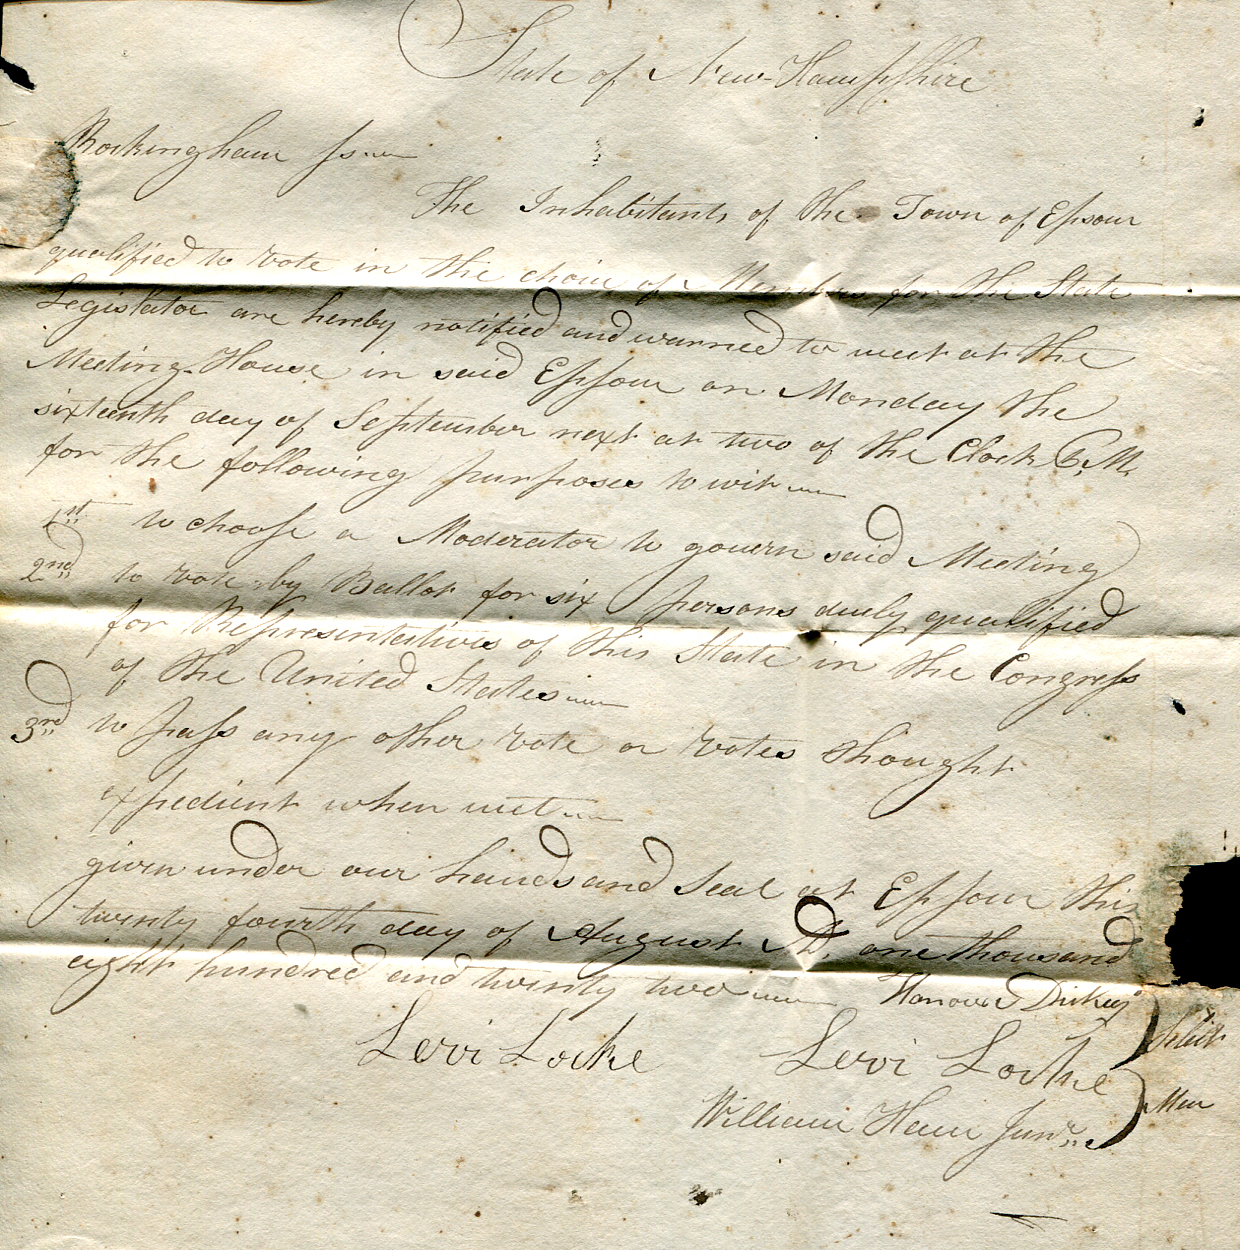 State of New-Hampshire
Rockingham ss
The Inhabitants of the Town of Epsom
qualified to vote in the choice of Members for the State
Legislator are hereby notified and warned to meet at the
Meeting-House in said Epsom on Monday the
sixteenth day of September next at two of the Clock P.M.
for the following purposes to wit
1st to choose a Moderator to govern said Meeting
2nd to vote by Ballot for six persons duely qualified
for Representatives of this State in the Congress
of the United States
3rd to pass any other vote or votes thought
expedient when met
given under our hands and Seal at Epsom this
twenty fourth day of August AD, one thousand
eight hundred and twenty two
Hanover Dickey
Levi Locke Levi Locke
William Ham Junr.
Select
Men